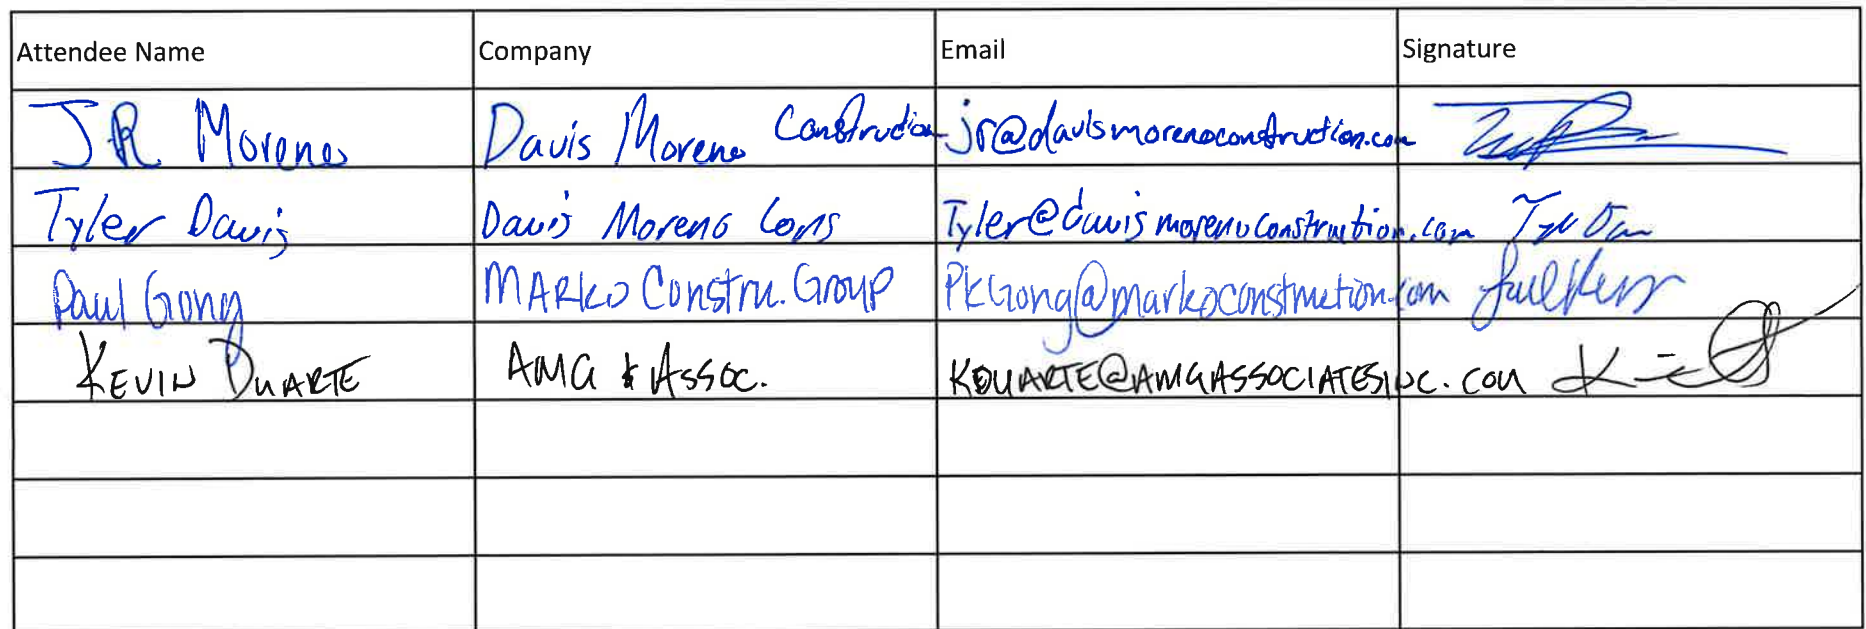 Attendee Name Company Email Signature
JR Moreno Davis Moreno Construction jr@davismorenoconstruction.com
Tyler Davis Davis Moreno Cons Tyler@davismorenoconstruction.com
Paul Gong MARKO Constru. Group PKGong@markoconstruction.com
KEVIN DUARTE AMG & ASSOC. KDUARTE@AMGASSOCIATESINC.COM